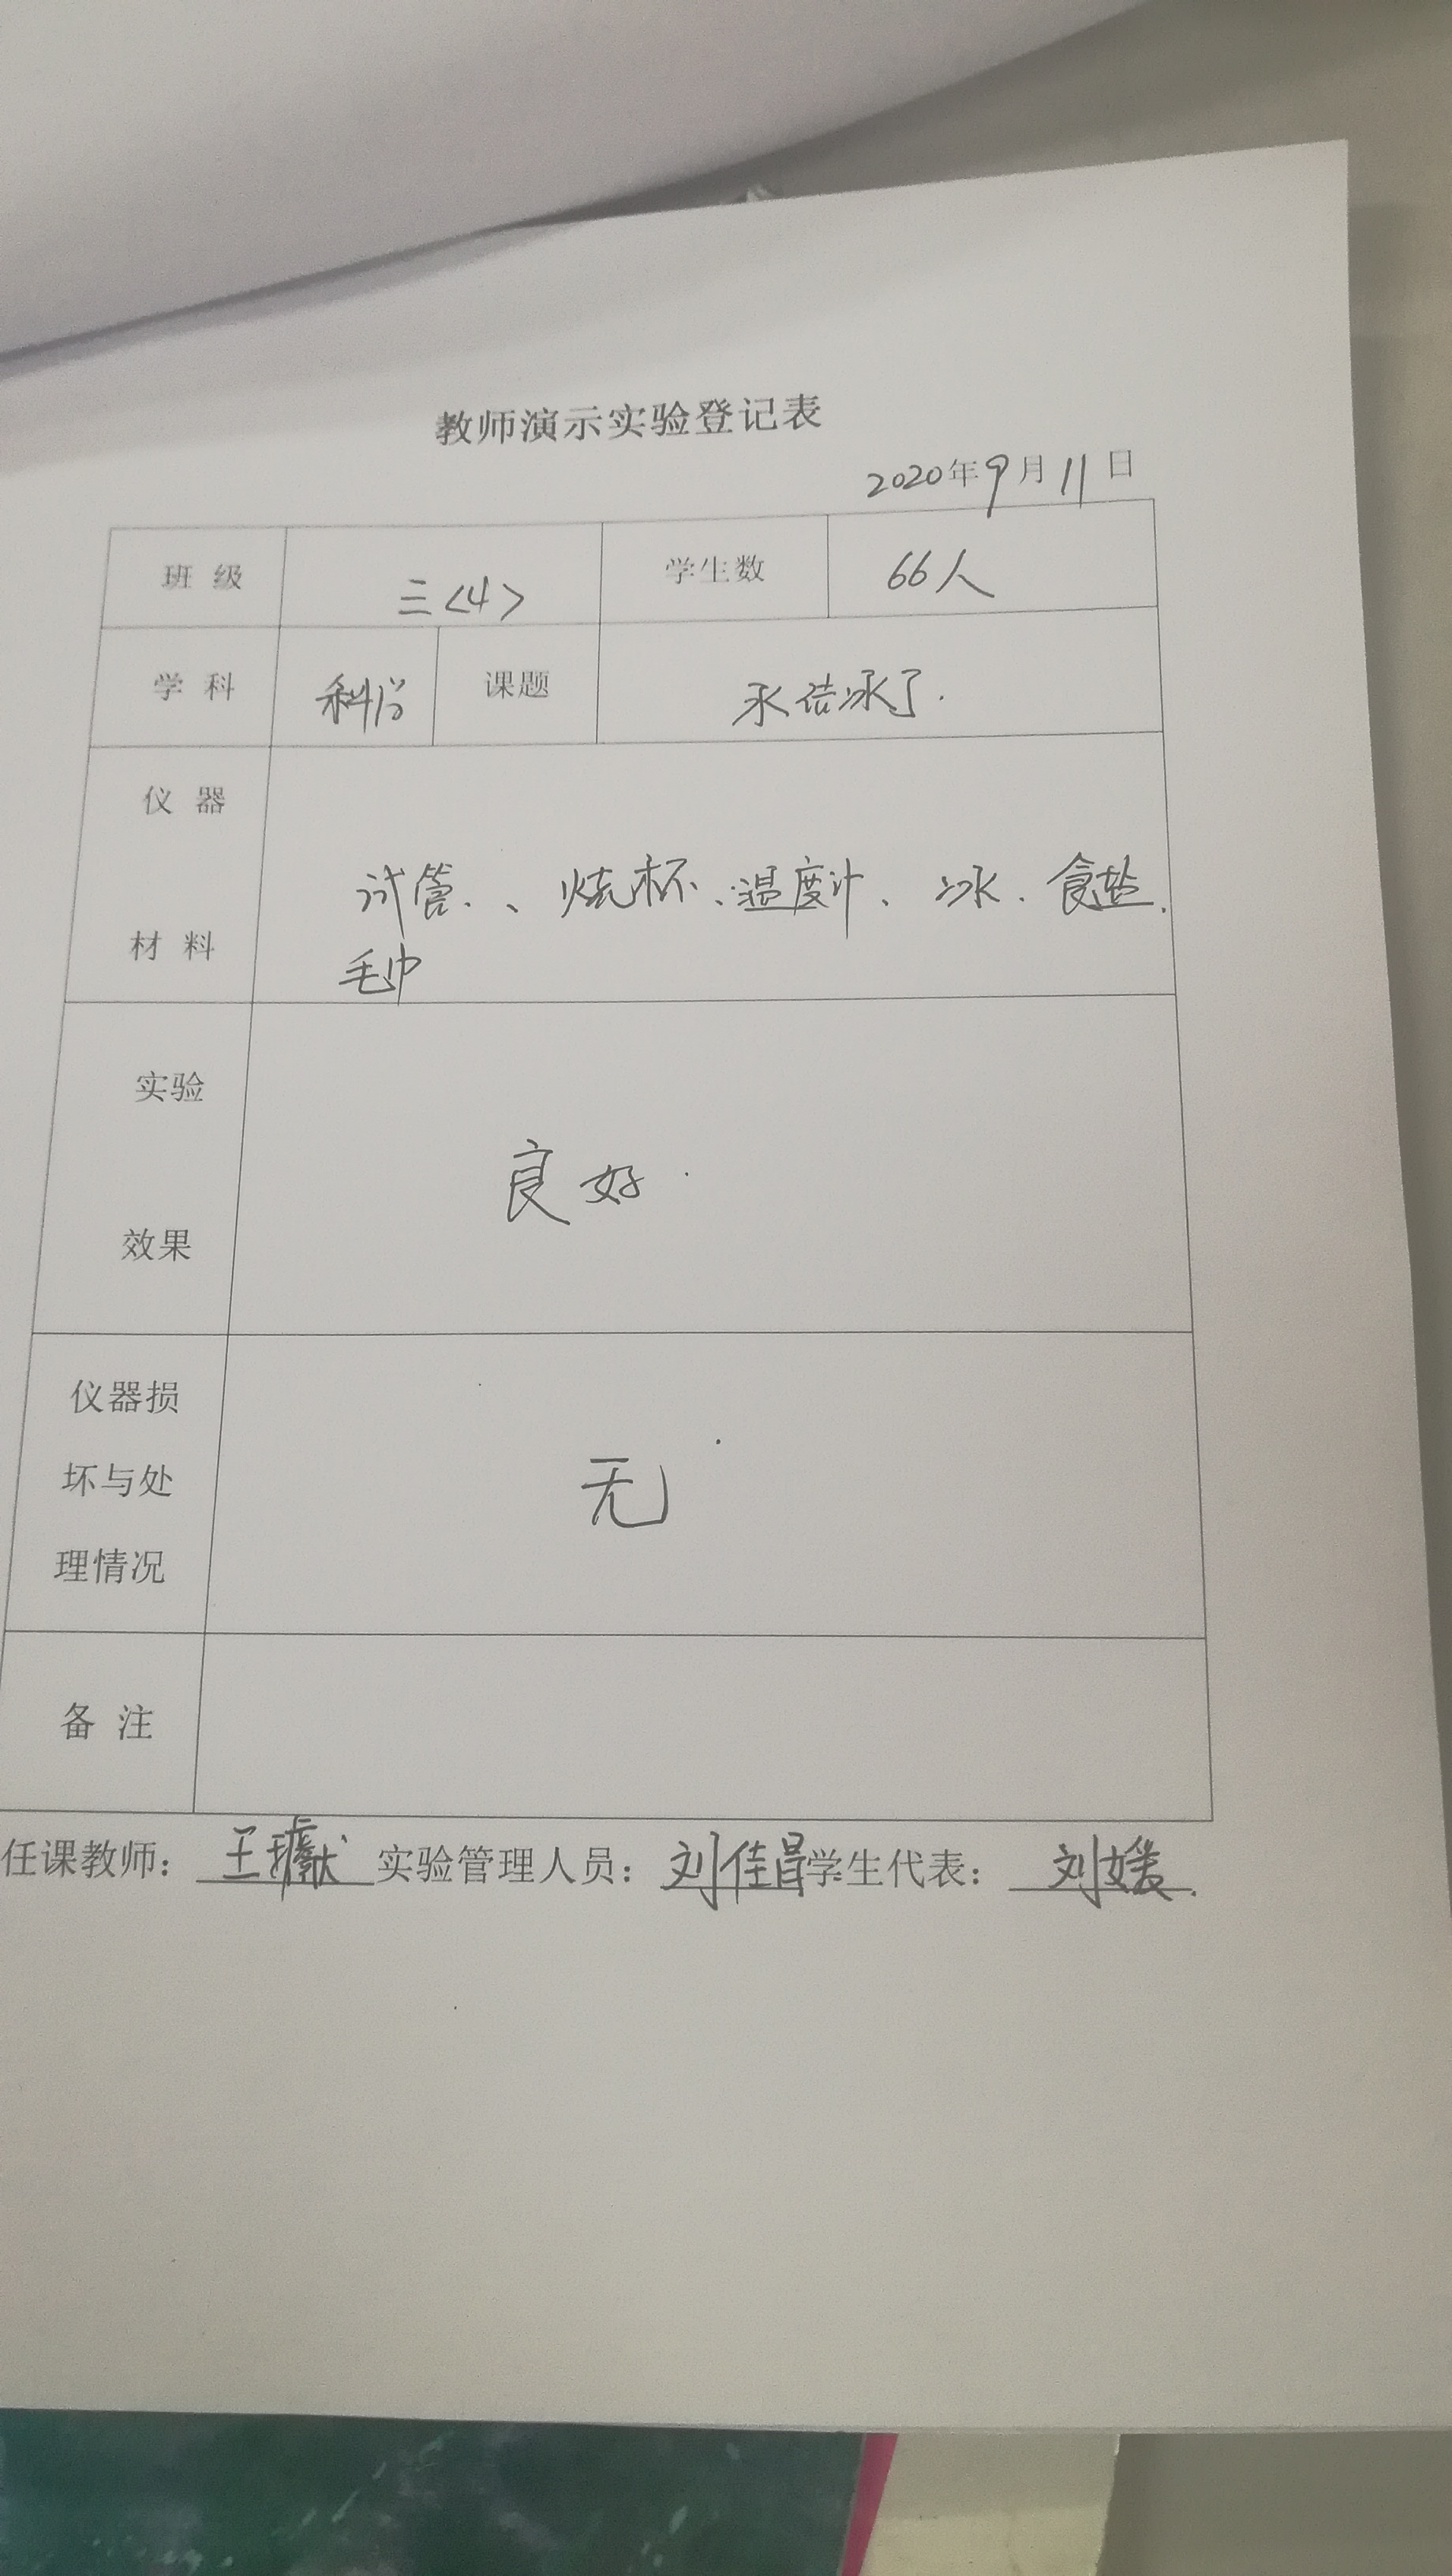 教师演示实验登记表
2020年9月11日
班 级 三<4> 学生数 66人
学 科 科学 课题 水结冰了.
仪 器
材 料
试管、、烧杯、温度计、冰、食盐、
毛巾
实验
效果
良好
仪器损
坏与处
理情况
无
备 注
任课教师： 王 实验管理人员：刘佳昌 学生代表： 刘媛